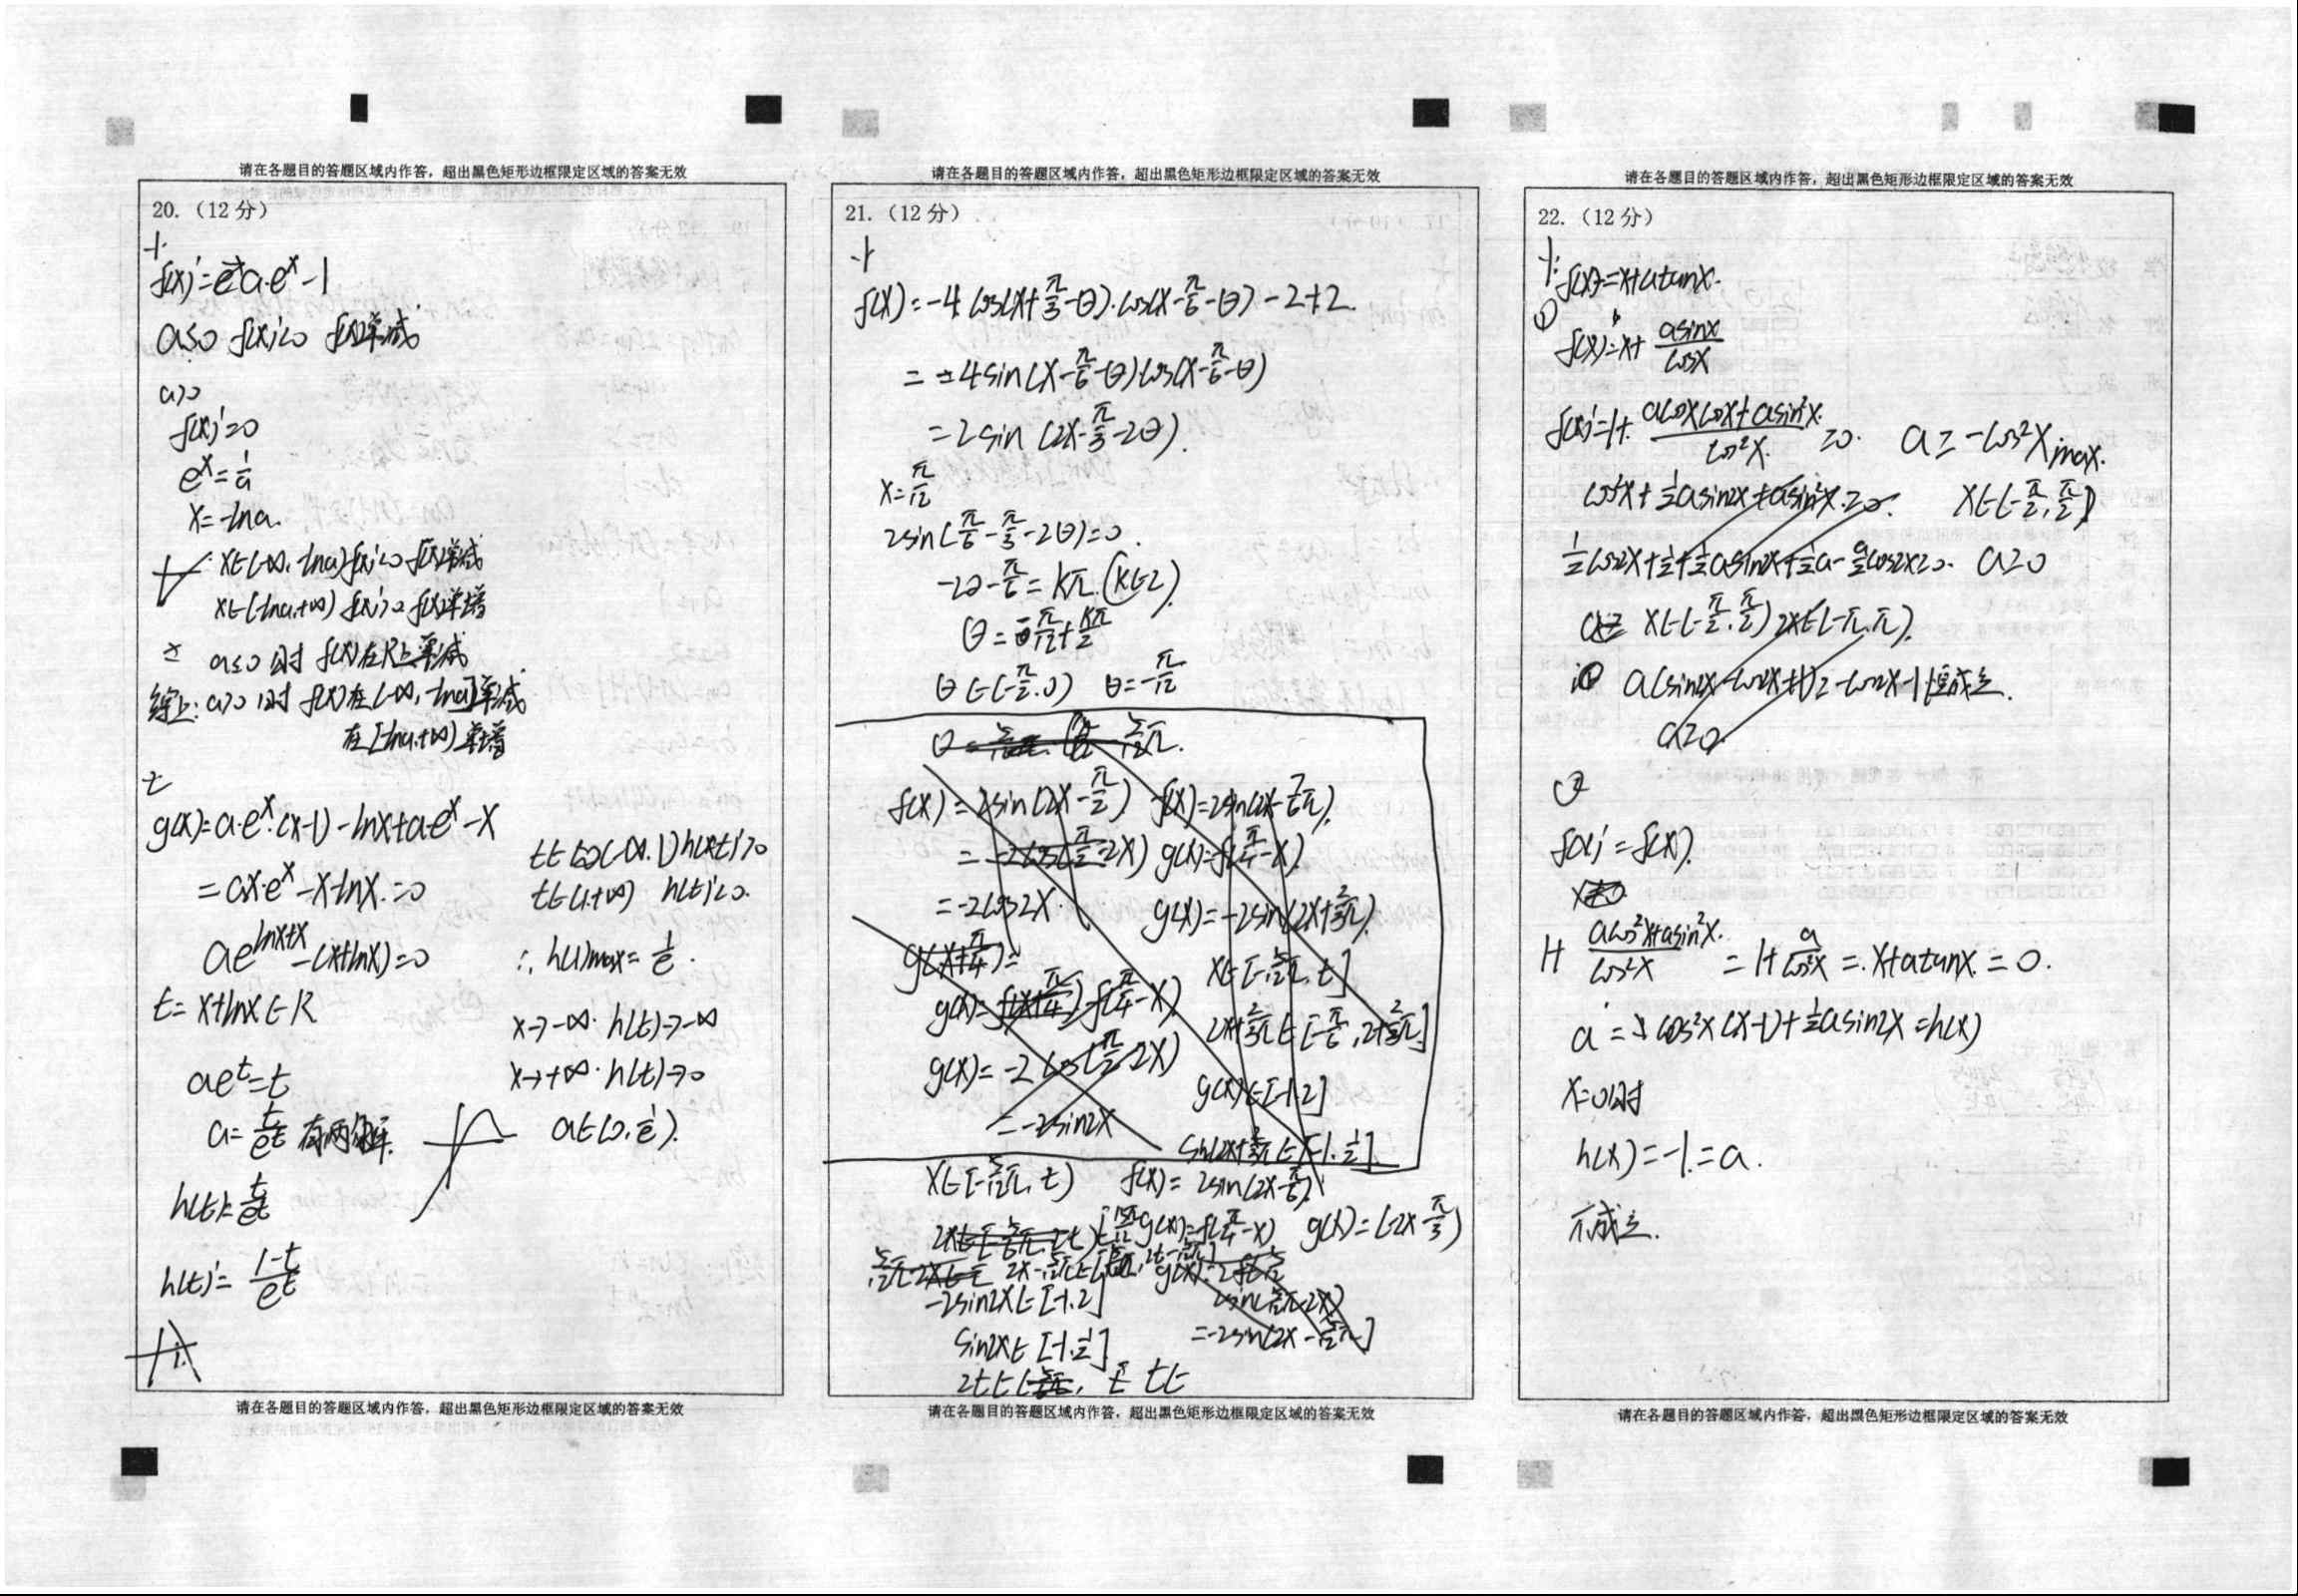 请在各题目的答题区域内作答，超出黑色矩形边框限定区域的答案无效
20.（12分）
f(x)'=a·e^x-1
a≤0 f(x)'<0 f(x)单减
a>0
f(x)'=0
e^x=1/a
x=-lna.
x∈(-∞,-lna)f(x)'<0 f(x)单减
x∈(-lna,+∞) f(x)'>0 f(x)单增
a≤0时 f(x)在R上单减
综上: a>0时 f(x)在(-∞,-lna]单减
在[-lna,+∞)单增
g(x)=a·e^x·(x-1)-lnx+a·e^x-x
=ax·e^x-x-lnx=0
ae^(lnx+x)-(x+lnx)=0
t=x+lnx∈R
ae^t=t
a=t/e^t 有两解.
h(t)=t/e^t
h(t)'=(1-t)/e^t
t∈(-∞,1)h(t)'>0
t∈(1,+∞) h(t)'<0.
∴h(1)max=1/e.
x→-∞·h(t)→-∞
x→+∞·h(t)→0
a∈(0,1/e).
请在各题目的答题区域内作答，超出黑色矩形边框限定区域的答案无效
请在各题目的答题区域内作答，超出黑色矩形边框限定区域的答案无效
21.（12分）
f(x)=-4cos(x+π/3-θ)·cos(x-π/6-θ)-2+2.
=4sin(x-π/6-θ)cos(x-π/6-θ)
=2sin(2x-π/3-2θ).
x=π/12
2sin(π/6-π/3-2θ)=0.
-2θ-π/6=kπ.(k∈Z).
θ=-π/12+kπ/2
θ∈(-π/2,0) θ=-π/12
f(x)=2sin(2x-π/2) f(x)=2sin(2x-7/6π).
=-2cos2x. g(x)=f(π/4-x)
g(x)=-2sin(2x+2/3π).
g(x+π/4)=
x∈[-5/12π,t]
g(x)=f(π/4-x)
2x+2/3π∈[-π/6,2t+2/3π]
g(x)=-2cos(π/2-2x)
g(x)∈[-1,2]
=-2sin2x
sin(2x+2/3π)∈[-1,1/2].
x∈[-5/12π,t) f(x)=2sin(2x-π/6)
g(x)=f(π/4-x) g(x)=(-2x π/3)
-2sin2x∈[-1,2]
sin2x∈[-1,1/2]
=-2sin(2x-5/12π]
t∈
请在各题目的答题区域内作答，超出黑色矩形边框限定区域的答案无效
请在各题目的答题区域内作答，超出黑色矩形边框限定区域的答案无效
22.（12分）
f(x)=x+atanx.
①
f(x)=x+asinx/cosx
f(x)'=1+(acosxcosx+asin²x)/cos²x≥0. a≥-cos²x max.
cos²x+1/2asin2x+asin²x≥0. x∈(-π/2,π/2)
1/2cos2x+1/2+1/2asin2x+1/2a-a/2cos2x≥0. a≥0
x∈(-π/2,π/2) 2x∈(-π,π).
a(sin2x-cos2x+1)≥-cos2x-1恒成立.
a≥0.
②
f(x)'=f(x).
1+(acos²x+asin²x)/cos²x=1+a/cos²x=x+atanx=0.
a=cos²x(x-1)+1/2asin2x=h(x)
x=0时
h(x)=-1=a.
不成立.
请在各题目的答题区域内作答，超出黑色矩形边框限定区域的答案无效